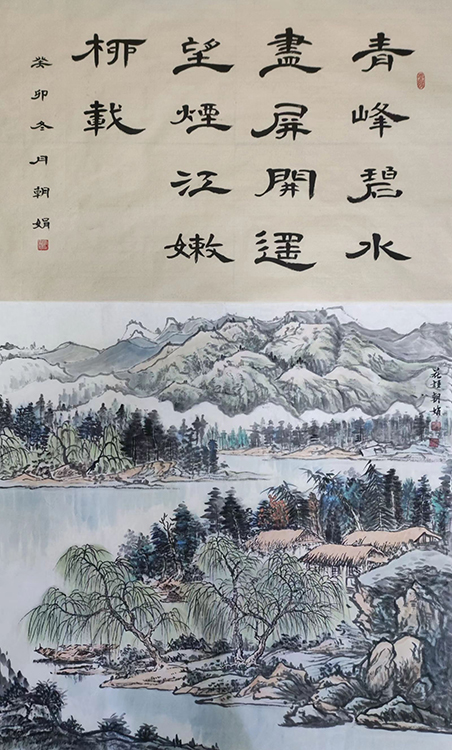 青峰碧水
畫屏開遥
望煙江嫩
柳載
癸卯冬月朝娟
朝娟